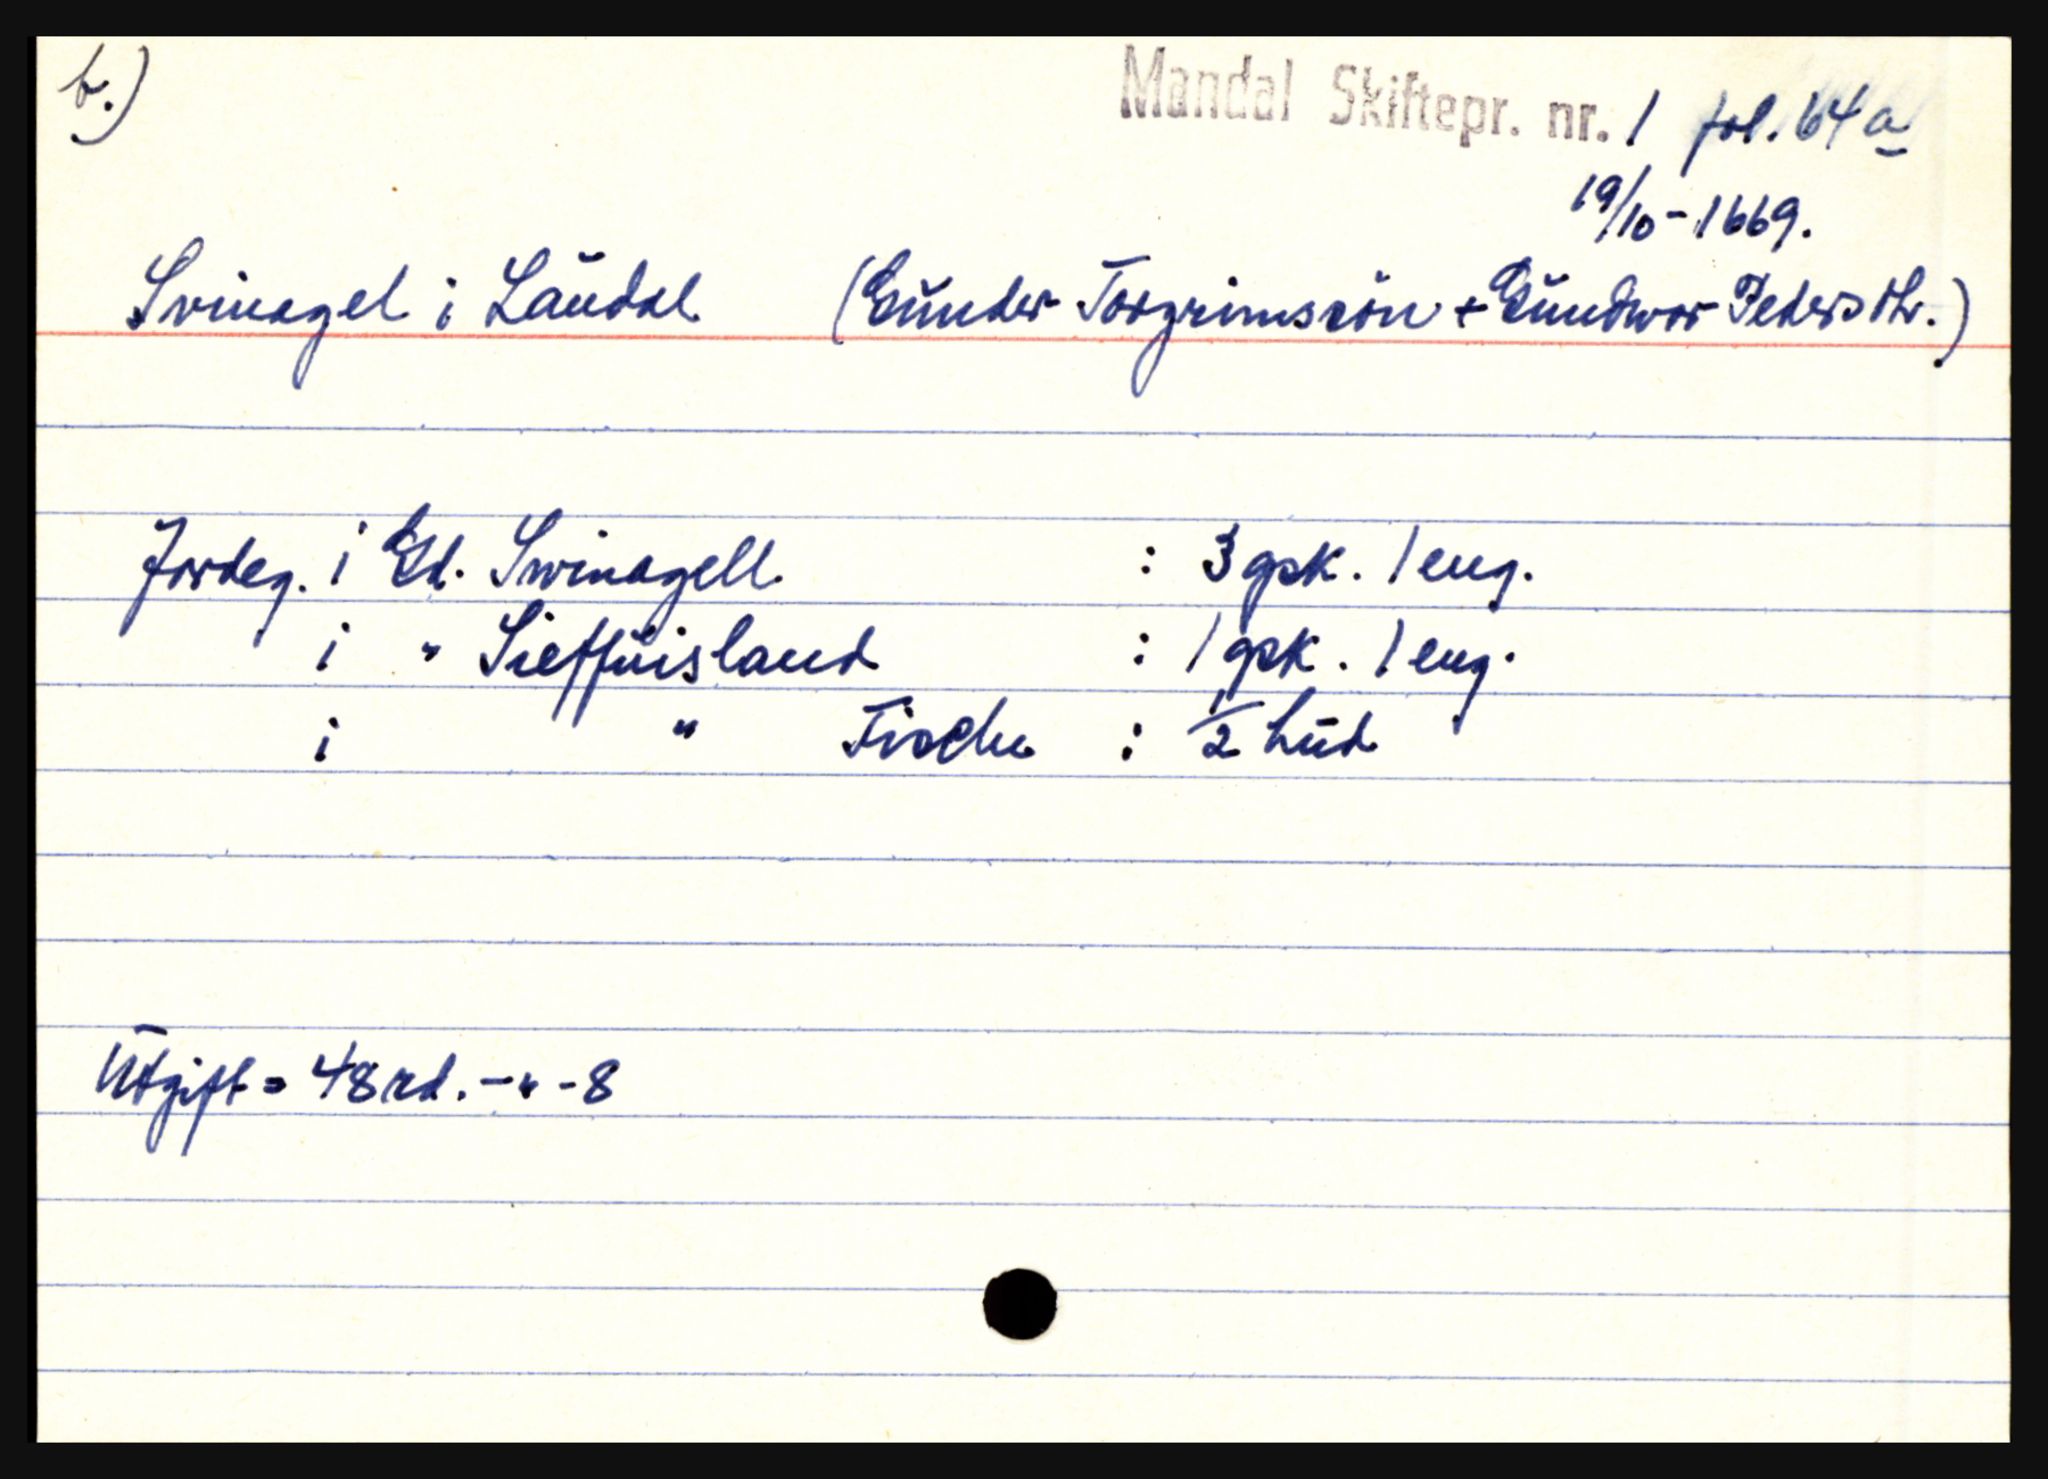 b.)
Mandal Skiftepr. nr. 1 fol. 64 a
19/10-1669.
Svinagel i Laudal (Gunder Torgrimssön + Gundwor Pedersdtr.)
Jordeg. i Gd. Swinagell : 3 gsk. 1 eng.
i " Sieffuisland : 1 gsk. 1 eng.
i " Fische : 1/2 hud
Utgift = 48 rd. - " - 8